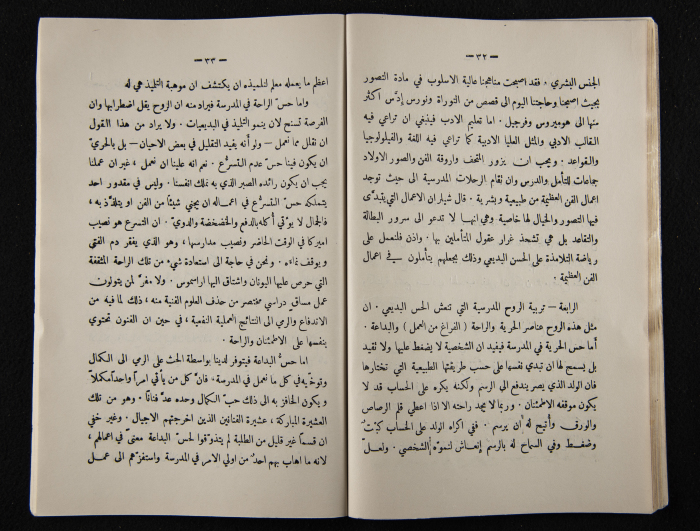 — ٣٢ —
الجنس البشري . فقد اصبحت مناهجنا عالية الاسلوب في مادة التصور
بحيث اصبحنا وحاجتنا اليوم الى قصص من التوراة ونورس إدّس أكثر
منها الى هوميروس وفرجيل . اما تعليم الادب فينبغي ان تراعي فيه
القالب الادبي والمثل العليا الادبية كما تراعي فيه اللغة والفيلولوجيا
والقواعد . ويجب ان يزور التحف واروقة الفن والصور الاولاد
جماعات للتأمل والدرس وان تقام الرحلات المدرسية الى حيث توجد
اعمال الفن العظيمة من طبيعية وبشرية . قال شيلر ان الاعمال التي يتبدّى
فيها التصور والخيال لها خاصية وهي انهـا لا تدعو الى سرور البطالة
والتقاعد بل هي تشحذ غرار عقول المتأملين بها . واذن فلنعمل على
رياضة التلامذة على الحسن البديعي وذلك بجعلهم يتأملون في اعمال
الفن العظيمة .
الرابعة – تربية الروح المدرسية التي تنعش الحس البديعي . ان
مثل هذه الروح عناصر الحرية والراحة ( الفراغ من العمل ) والبداعة .
أما حس الحرية في المدرسة فيفيد ان الشخصية لا يضغط عليها ولا تقيد
بل يسمح لها ان تبدي نفسها على حسب طريقتها الطبيعية التي تختارها
فان الولد الذي يصر يندفع الى الرسم ولكنه يكره على الحساب قد لا
يكون موقفه الاطمئنان . وربما لا يجد راحته الا اذا اعطي قلم الرصاص
والورق وأتيح له ان يرسم . ففي اكراه الولد على الحساب كبت
وضغط وفي السماح له بالرسم إنعاش لنموّه الشخصي . ولعلّ
— ٣٣ —
اعظم ما يعمله معلم لتلميذه ان يكتشف ان موهبة التلميذ هي له
واما حسّ الراحة في المدرسة فيراد منه ان الروح يقل اضطرابها وان
الفرصة تسنح لان ينمو التلميذ في البديعيات . ولا يراد من هذا القول
ان نقلل مما نعمل – ولو أنه يفيد التقليل في بعض الاحيان – بل بالحريّ
ان يكون فينا حسّ عدم التسرّع . نعم انه علينا ان نعمل ، غير ان عملنا
يجب ان يكون رائده الصبر الذي به نملك انفسنا . وليس في مقدور احد
يتملكه حسّ التسرّع في اعمـاله ان يجني شيئًا من الفن او يتلذّذ به ،
فالجمال لا يؤتي أكله بالدفع والخضخضة والدويّ . ان التسرع هو نصيب
اميركا في الوقت الحاضر ونصيب مدارسها ، وهو الذي يفقر دم الفتى
ويوقف نماءه . ونحن في حاجة الى استعادة شيء من تلك الراحة المثقفة
التي حرص عليها اليونان واشتاق اليها اراسموس . ولا مفرّ لمن يتولون
عمل مساق دراسي مختصر من حذف العلوم الفنية منه ، ذلك لما فيه من
الاندفاع والرمي الى النتائج العملية النفعية ، في حين ان الفنون تحتوي
بنفسها على الاطمئنان والراحة .
اما حسّ البداعة فيتوفر لدينا بواسطة الحث على الرمي الى الكمال
وتوخّيه في كل ما نعمل في المدرسة . فانّ كل من يأتي امراً واحداً مكمّلاً
ويكون الحافز به الى ذلك حبّ الكمال وحده عدّ فنانًا . وهو من تلك
العشيرة المباركة ، عشيرة الفنانين الذين اخرجتهم الاجيال . وغير خفي
ان قسمًا غير قليل من الطلبة لم يتذوّقوا لحسّ البداعة معنىً في اعمالهم ،
لانه ما اهاب بهم احدٌ من اولي الامر في المدرسة واستفزّهم الى عمل